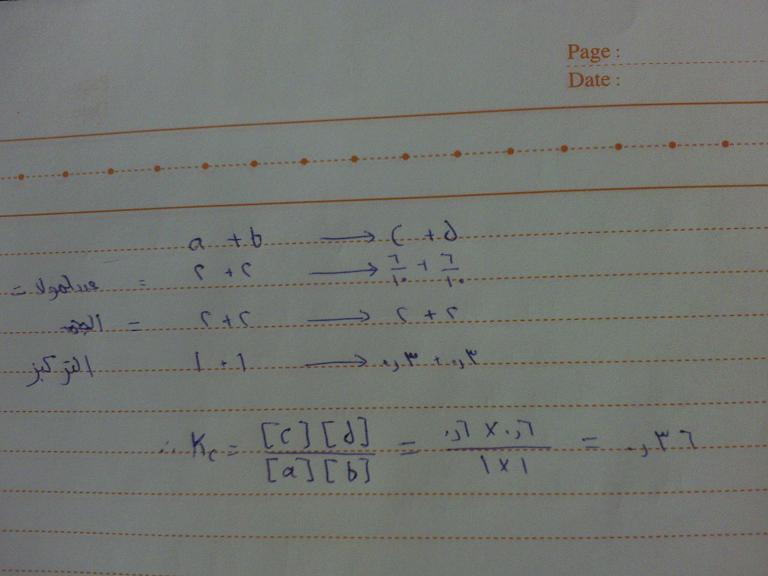 Page :
Date :
a + b → c + d
عدد مولات = ٢ + ٢ → ٦/١٠ + ٦/١٠
= ٢ + ٢ → ٢ + ٢
التركيز ١ + ١ → ٠,٣ + ٠,٣
∴ Kc = [c][d]/[a][b] = ٠,٦ × ٠,٦/١ × ١ = ٠,٣٦